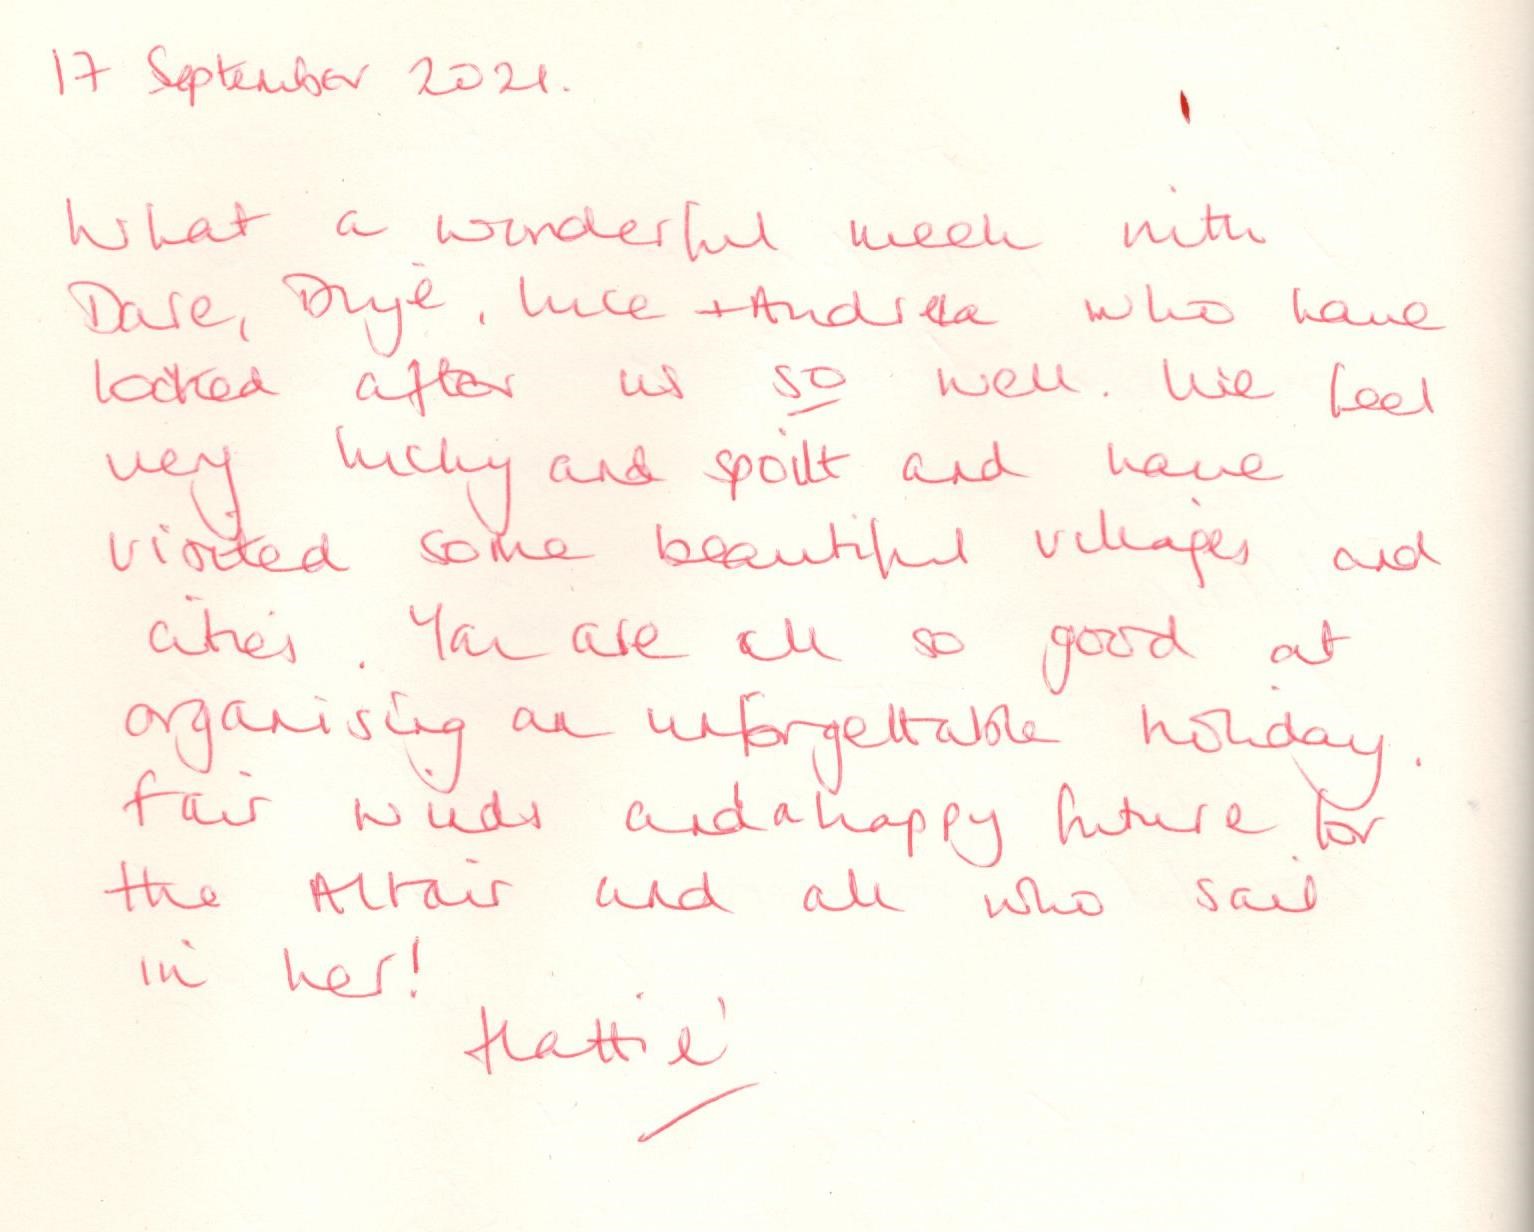 17 September 2021.
What a wonderful week with
Dare, Drije, Luce + Andrea who have
looked after us so well. We feel
very lucky and spoilt and have
visited some beautiful villages and
cities. You are all so good at
organising an unforgettable holiday.
Fair winds and a happy future for
the Altair and all who sail
in her!
Hattie